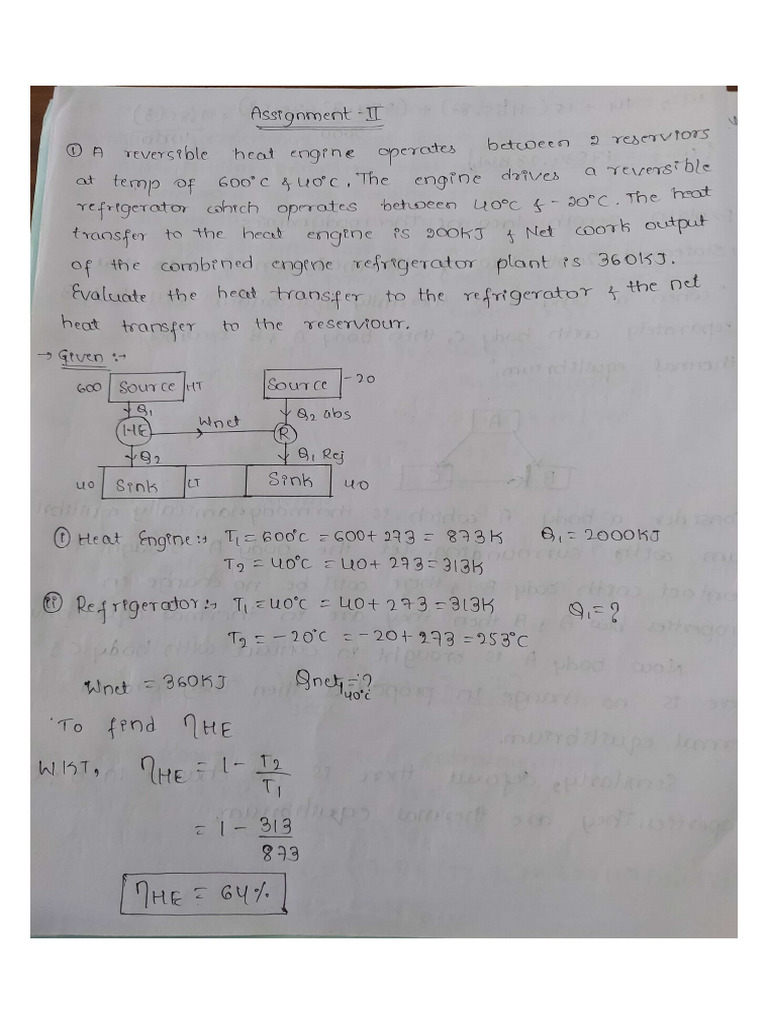 Assignment - II
① A reversible heat engine operates between 2 reserviors
at temp of 600°C & 40°C. The engine drives a reversible
refrigerator which operates between 40°C & -20°C. The heat
transfer to the heat engine is 200KJ & Net work output
of the combined engine refrigerator plant is 360KJ.
Evaluate the heat transfer to the refrigerator & the net
heat transfer to the reserviour.
→ Given :-
600 Source HT Source -20
Q1 Q2 abs
HE Wnet R
Q2 Q1 Rej
40 Sink LT Sink 40
ⓘ Heat Engine:- T1 = 600°C = 600 + 273 = 873K Q1 = 2000KJ
T2 = 40°C = 40 + 273 = 313K
ⓘⓘ Refrigerator:- T1 = 40°C = 40 + 273 = 313K Q1 = ?
T2 = -20°C = -20 + 273 = 253°C
Wnet = 360KJ Qnet = ? 40°C
To find ηHE
WKT, ηHE = 1 - T2/T1
= 1 - 313/873
ηHE = 64%